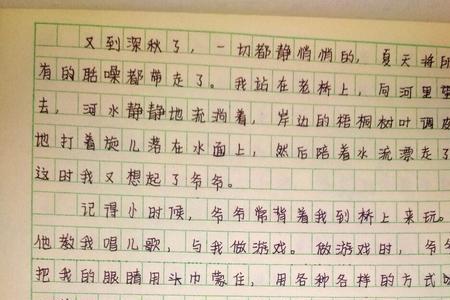 又到深秋了，一切都静悄悄的，夏天将所
有的聒噪都带走了。我站在老桥上，向河里望
去，河水静静地流淌着，岸边的梧桐树叶调皮
地打着旋儿落在水面上，然后陪着水流漂走了
这时我又想起了爷爷。
记得小时候，爷爷常背着我到桥上来玩。
他教我唱儿歌，与我做游戏。做游戏时，爷
把我的眼睛用头巾蒙住，用各种各样的方式